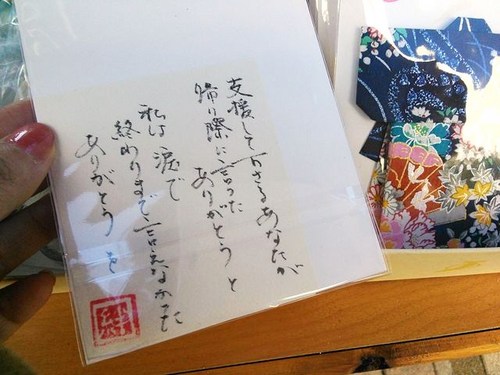 支援して下さるあなたが
帰り際に言った
ありがとうと
私は涙で
終わりまで言えなかった
ありがとうを
絆